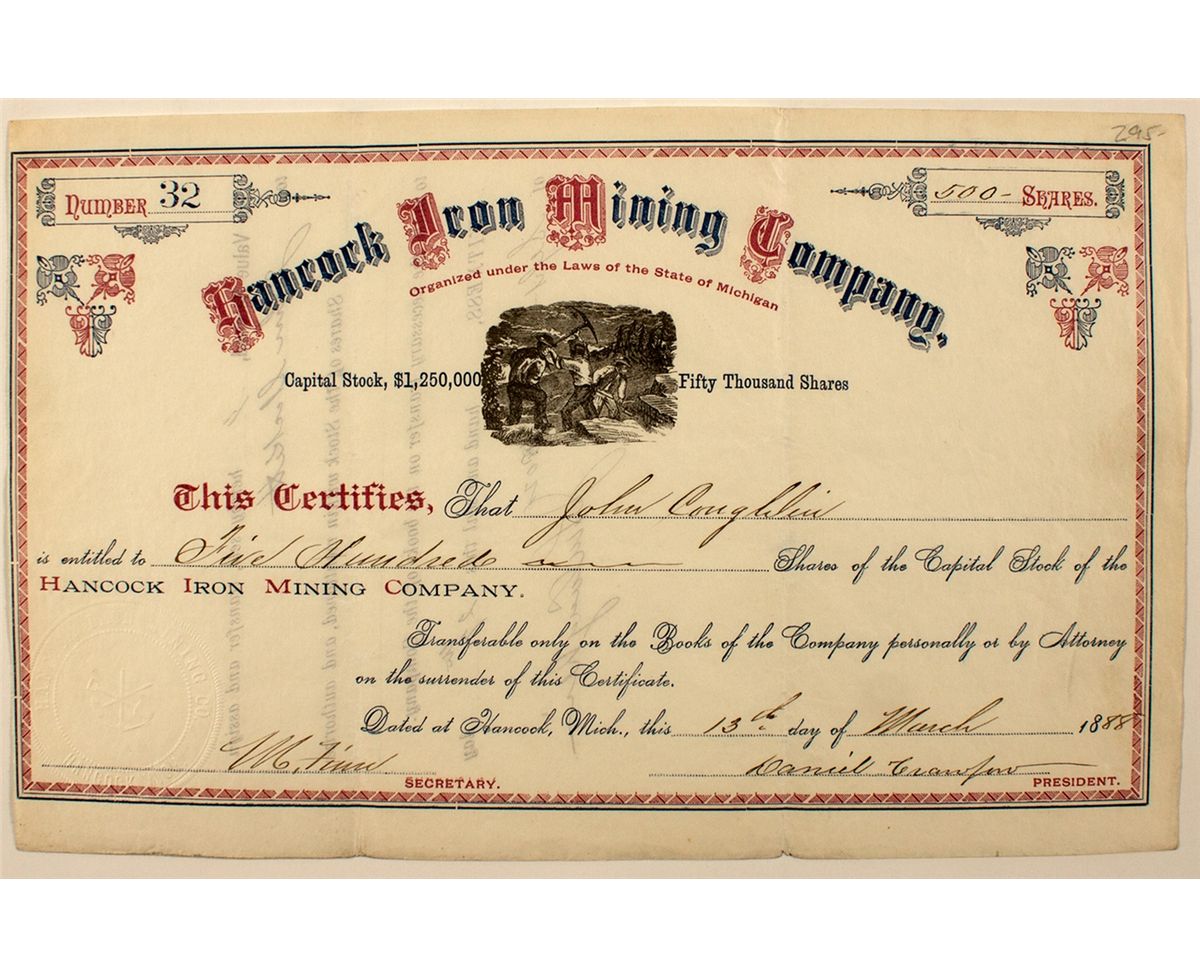 295-
NUMBER 32
500- SHARES.
Hancock Iron Mining Company.
Organized under the Laws of the State of Michigan
Capital Stock, $1,250,000 Fifty Thousand Shares
This Certifies, That John Coughlin
is entitled to Five Hundred Shares of the Capital Stock of the
HANCOCK IRON MINING COMPANY.
Transferable only on the Books of the Company personally or by Attorney
on the surrender of this Certificate.
Dated at Hancock, Mich., this 13th day of March 1888
M. Finn Daniel Crawford
SECRETARY. PRESIDENT.